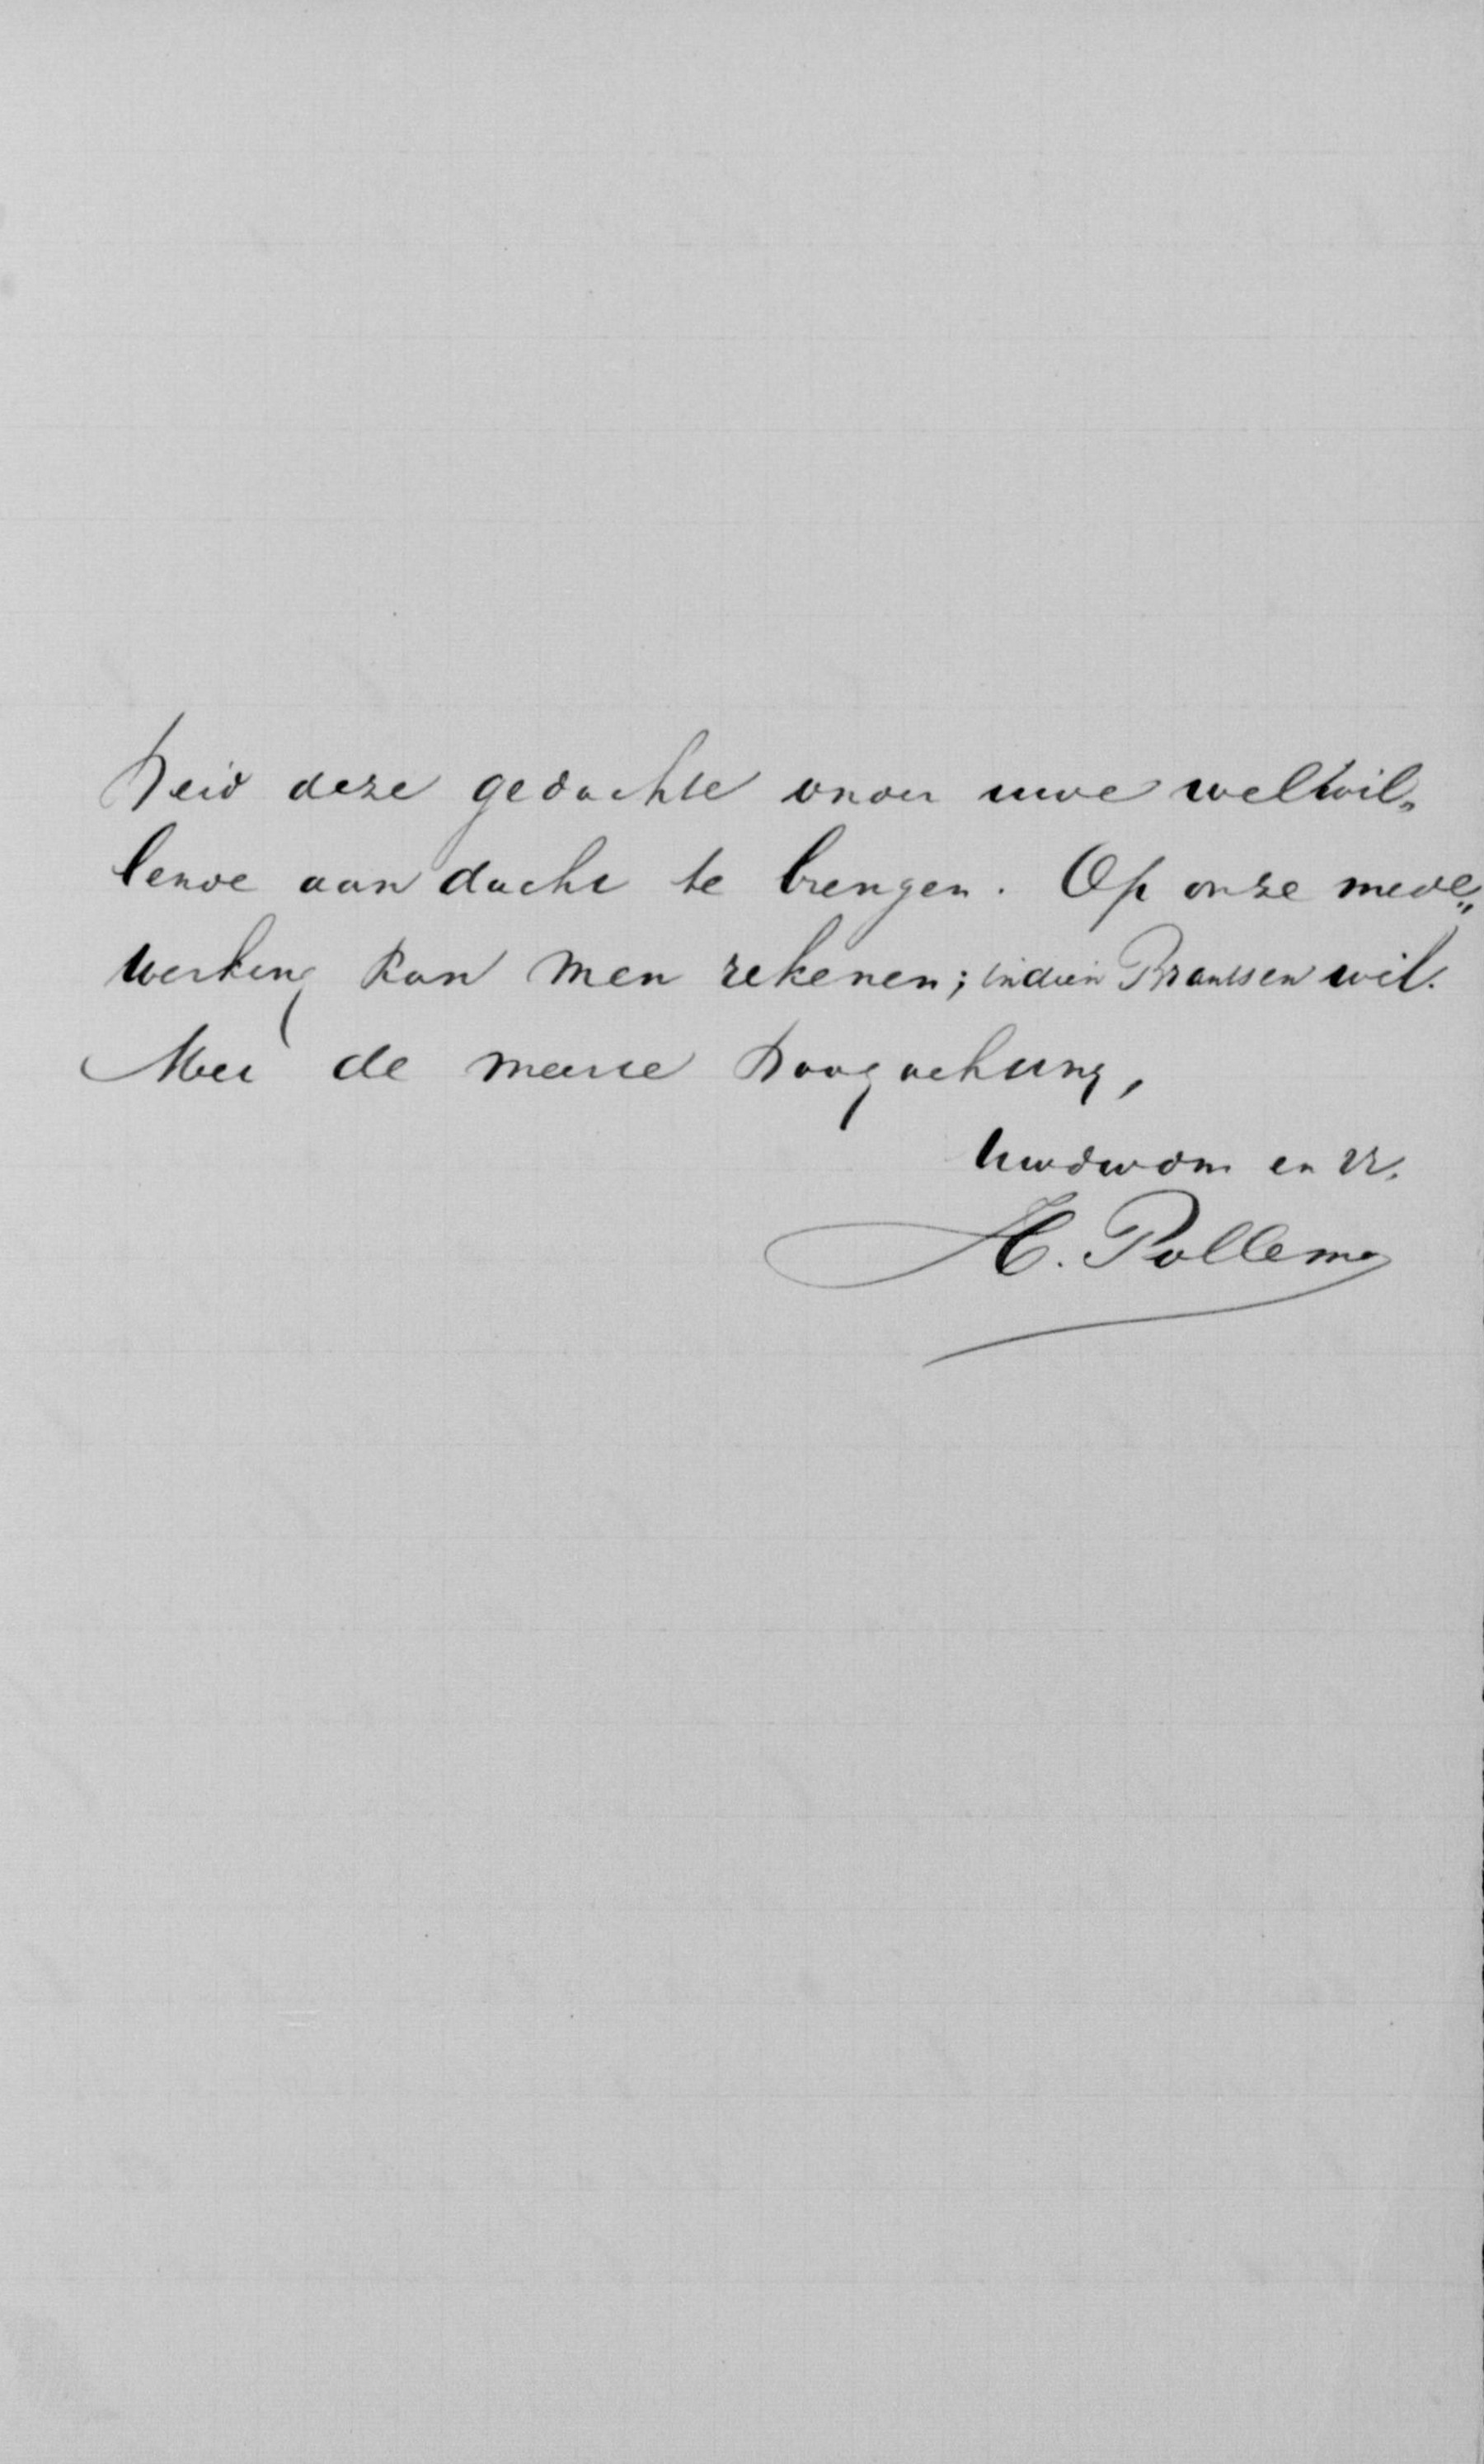 heid deze gedachte onder uwe welwil„
lende aandacht te brengen. Op onze mede„
werking kan men rekenen; indien Brantsen wil.
Met de meeste hoogachting,
Uwdwdnr en Vr.
H. Pollema